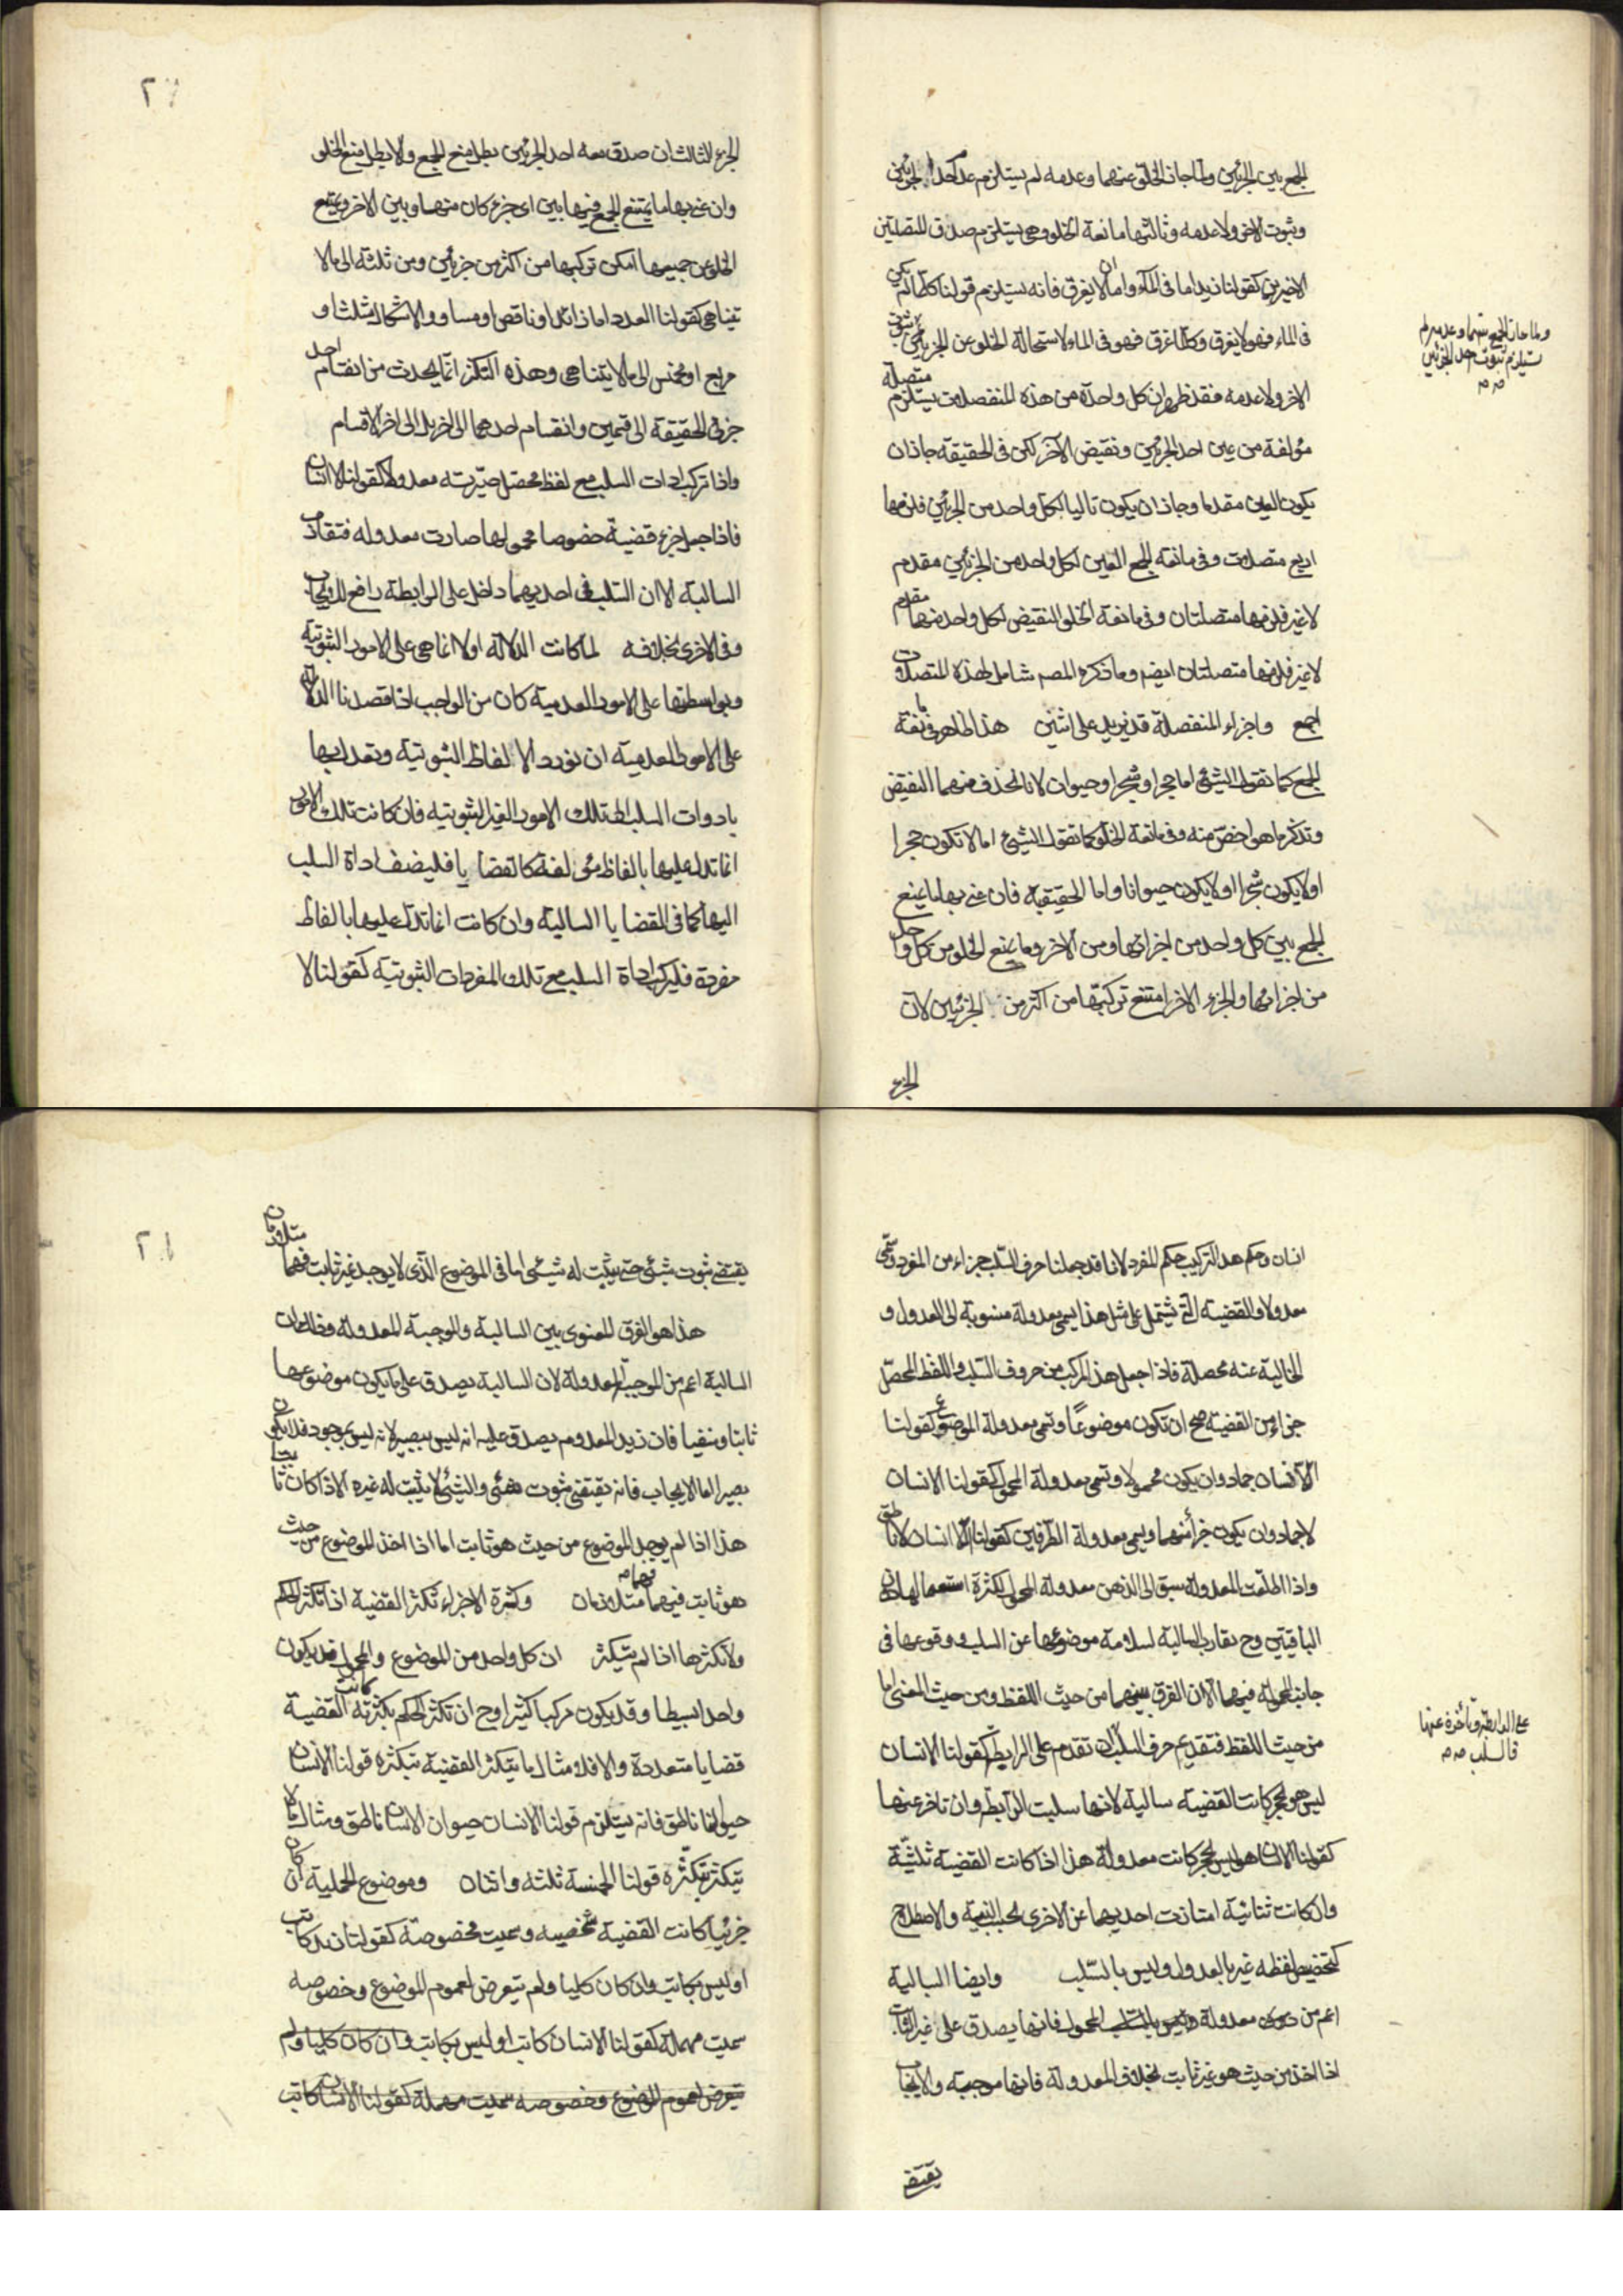 الجمع بين الجزئين ولما جاز الخلو عنهما وعدمه لم يستلزم عدم احد الجزئين
وثبوت الاخر ولا عدمه وثالثها مانعة الخلو وهى يستلزم صدق المتصلتين
الاخيرتين كقولنا زيد اما فى الماء واما ان لا يغرق فانه يستلزم قولنا كلما لم يكن
فى الماء فهو لا يغرق وكلما غرق فهو فى الماء لاستحالة الخلو عن الجزئين ثبوت
ولما جاز الجمع بينهما وعدمه لم
يستلزم ثبوت احد الجزئين
صح
الاخر ولا عدمه فقد ظهر ان كل واحدة من هذه المنفصلات يستلزم متصلة
مؤلفة من عين احد الجزئين ونقيض الآخر لكن فى الحقيقة جاز ان
يكون العين مقدما وجاز ان يكون تاليا لكل واحد من الجزئين فلزمها
اربع متصلات وفى مانعة الجمع العين لكل واحد من الجزئين مقدم
لا غير فلزمها متصلتان وفى مانعة الخلو النقيض لكل واحد منهما مقدم
لا غير فلزمها متصلتان ايضم وما ذكره المصم شامل لهذه المتصلات
اجمع واجزاء المنفصلة قد يزيد على اثنين هذا ظاهر فى مانعة
الجمع كما تقول الشيئ اما حجر او شجر او حيوان لانا نحذف منهما النقيض
وتذكر ما هو اخص منه وفى مانعة الخلو كما تقول الشيئ اما لا تكون حجرا
او لا يكون شجرا او لا يكون حيوانا واما الحقيقية فان عنى بها ما يمنع
الجمع بين كل واحد من اجزائها ومن الاخر وما يمنع الخلو من كل واحد
من اجزائها والجزء الاخر امتنع تركبها من اكثر من الجزئين لان
الجزء
الجزء الثالث ان صدق معه احد الجزئين بطل منع الجمع والا بطل منع الخلو
وان عنى بها ما يمتنع الجمع فيها بين اى جزء كان منها وبين الاخر ويمتنع
الخلو عن جميعها امكن تركبها من اكثر من جزئين ومن ثلثة الى ما لا
تيناهى كقولنا العدد اما زائد او ناقص او مساو والاشكال مثلث او
مربع او مخمس الى ما لا يتناهى وهذه التكثر انما يحدث من انقسام احد
جزئى الحقيقة الى قسمين وانقسام احدهما الى اخر بل الى اخر الاقسام
واذا تركب ادات السلب مع لفظ محصل صيرته معدولا كقولنا لا انسان
فاذا جعل جزء قضية خصوصا محمولها صارت معدوله فتقاذف
السالبة الا ان السلب فى احديهما داخل على الرابطة رافع للايجاب
وفى الاخرى بخلافه لما كانت الدلالة اولا انما هى على الامور الثبوتية
وبواسطتها على الامور العدمية كان من الواجب اذا قصدنا الدلالة
على الامور العدمية ان نورد الالفاظ الثبوتية وتعدل بها
بادوات السلب الى تلك الامور الغير الثبوتيه فان كانت تلك الامور
انما تدل عليها بالفاظ مؤلفة كالقضايا فليضف اداة السلب
اليها كما فى القضايا السالبة وان كانت انما تدل عليها بالفاظ
مفردة فليركب اداة السلب مع تلك المفردات الثبوتية كقولنا لا
انسان وحكم هذا التركيب حكم المفرد لانا قد جعلنا حرف السلب جزاء من المفرد وتسمى
معدولا والقضية التى تشتمل على مثل هذا يسمى معدولة منسوبة الى العدول و
الخالية عنه محصلة فاذا جعل هذا المركب من حروف السلب واللفظ المحصل
جزاء من القضية صح ان تكون موضوعا وتسمى معدولة الموضوع كقولنا
اللاانسان جماد وان يكون محمولا وتسمى معدولة المحمول كقولنا الانسان
لا جماد وان يكون جزأ منهما ويسمى معدولة الطرفين كقولنا اللا انسان لا ناطق
واذا اطلقت المعدولة سبق الى الذهن معدولة المحمول لكثرة استعمالها دون
الباقيتين وح يقارب السالبة لسلامة موضوعها عن السلب ووقوعها فى
جانب المحمول فيهما الا ان الفرق بينهما من حيث اللفظ ومن حيث المعنى اما
من حيث اللفظ فبتقديم حرف السلب ان تقدم على الرابطة كقولنا الانسان
على الرابطة وتأخره عنها
فالسلب صح
ليس هو بحجر كانت القضية سالبة لانها سلبت الرابطة وان تاخر عنها
كقولنا الانسان هو ليس بحجر كانت معدولة هذا اذا كانت القضية ثلثية
وان كانت ثنائية امتازت احديهما عن الاخرى بحسب النية والاصطلاح
كتخصيص لفظه غير بالعدول وليس بالسلب وايضا السالبة
اعم من معدولة المحمول فانها يصدق على غير الثابت
اذا اخذ من حيث هو غير ثابت بخلاف المعدولة فانها موجبة والايجاب
يقتضى
يقتضى ثبوت شيئ حتى يثبت له شيئ اما فى الموضوع الذى لا يوجد غير ثابت فهما متلازمان
هذا هو الفرق المعنوى بين السالبة والموجبة المعدولة وذلك ان
السالبة اعم من الموجبة المعدولة لان السالبة يصدق على ما يكون موضوعها
ثابتا ومنفيا فان زيد المعدوم يصدق عليه انه ليس ببصير لانه ليس بموجود فلا يكون
بصيرا اما الايجاب فانه يقتضى ثبوت شيئ والشيئ لا يثبت له غيره الا اذا كان ثابتا
هذا اذا لم يوجد الموضوع من حيث هو ثابت اما اذا اخذ الموضوع من حيث
هو ثابت فيهما فهما متلازمان وكثرة الاجزاء تكثر القضية اذا تكثر الحكم
ولا تكثرها اذا لم يتكثر ان كل واحد من الموضوع والمحمول قد يكون
واحدا بسيطا وقد يكون مركبا كثيرا وح ان تكثر الحكم بكثرته كانت القضية
قضايا متعددة والا فلا مثال ما يتكثر القضية بتكثره قولنا الانسان
حيوان ناطق فانه يستلزم قولنا الانسان حيوان الانسان ناطق ومثال ما لا
يتكثر بتكثره قولنا الخمسة ثلثة واثنان وموضوع الحملية ان كان
جزئيا كانت القضية شخصيه وسميت مخصوصة كقولنا زيد كاتب
او ليس بكاتب وان كان كليا ولم يتعرض لعموم الموضوع وخصوصه
سميت مهملة كقولنا الانسان كاتب او ليس بكاتب وان كان كليا ولم
يتعرض لعموم الموضوع وخصوصه سميت مهملة كقولنا الانسان كاتب